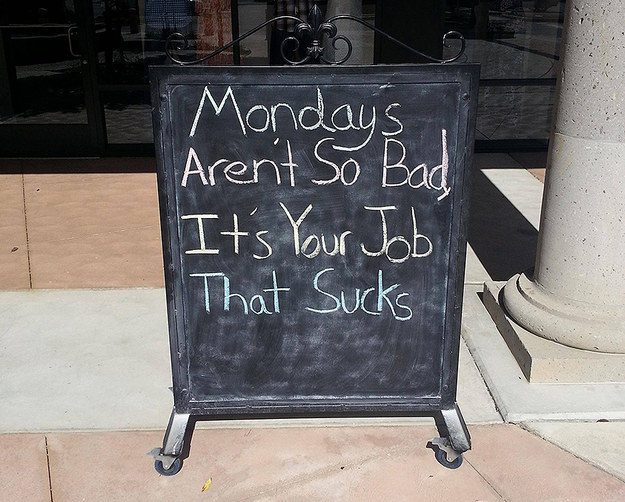 Mondays
Aren't So Bad,
It's Your Job
That Sucks